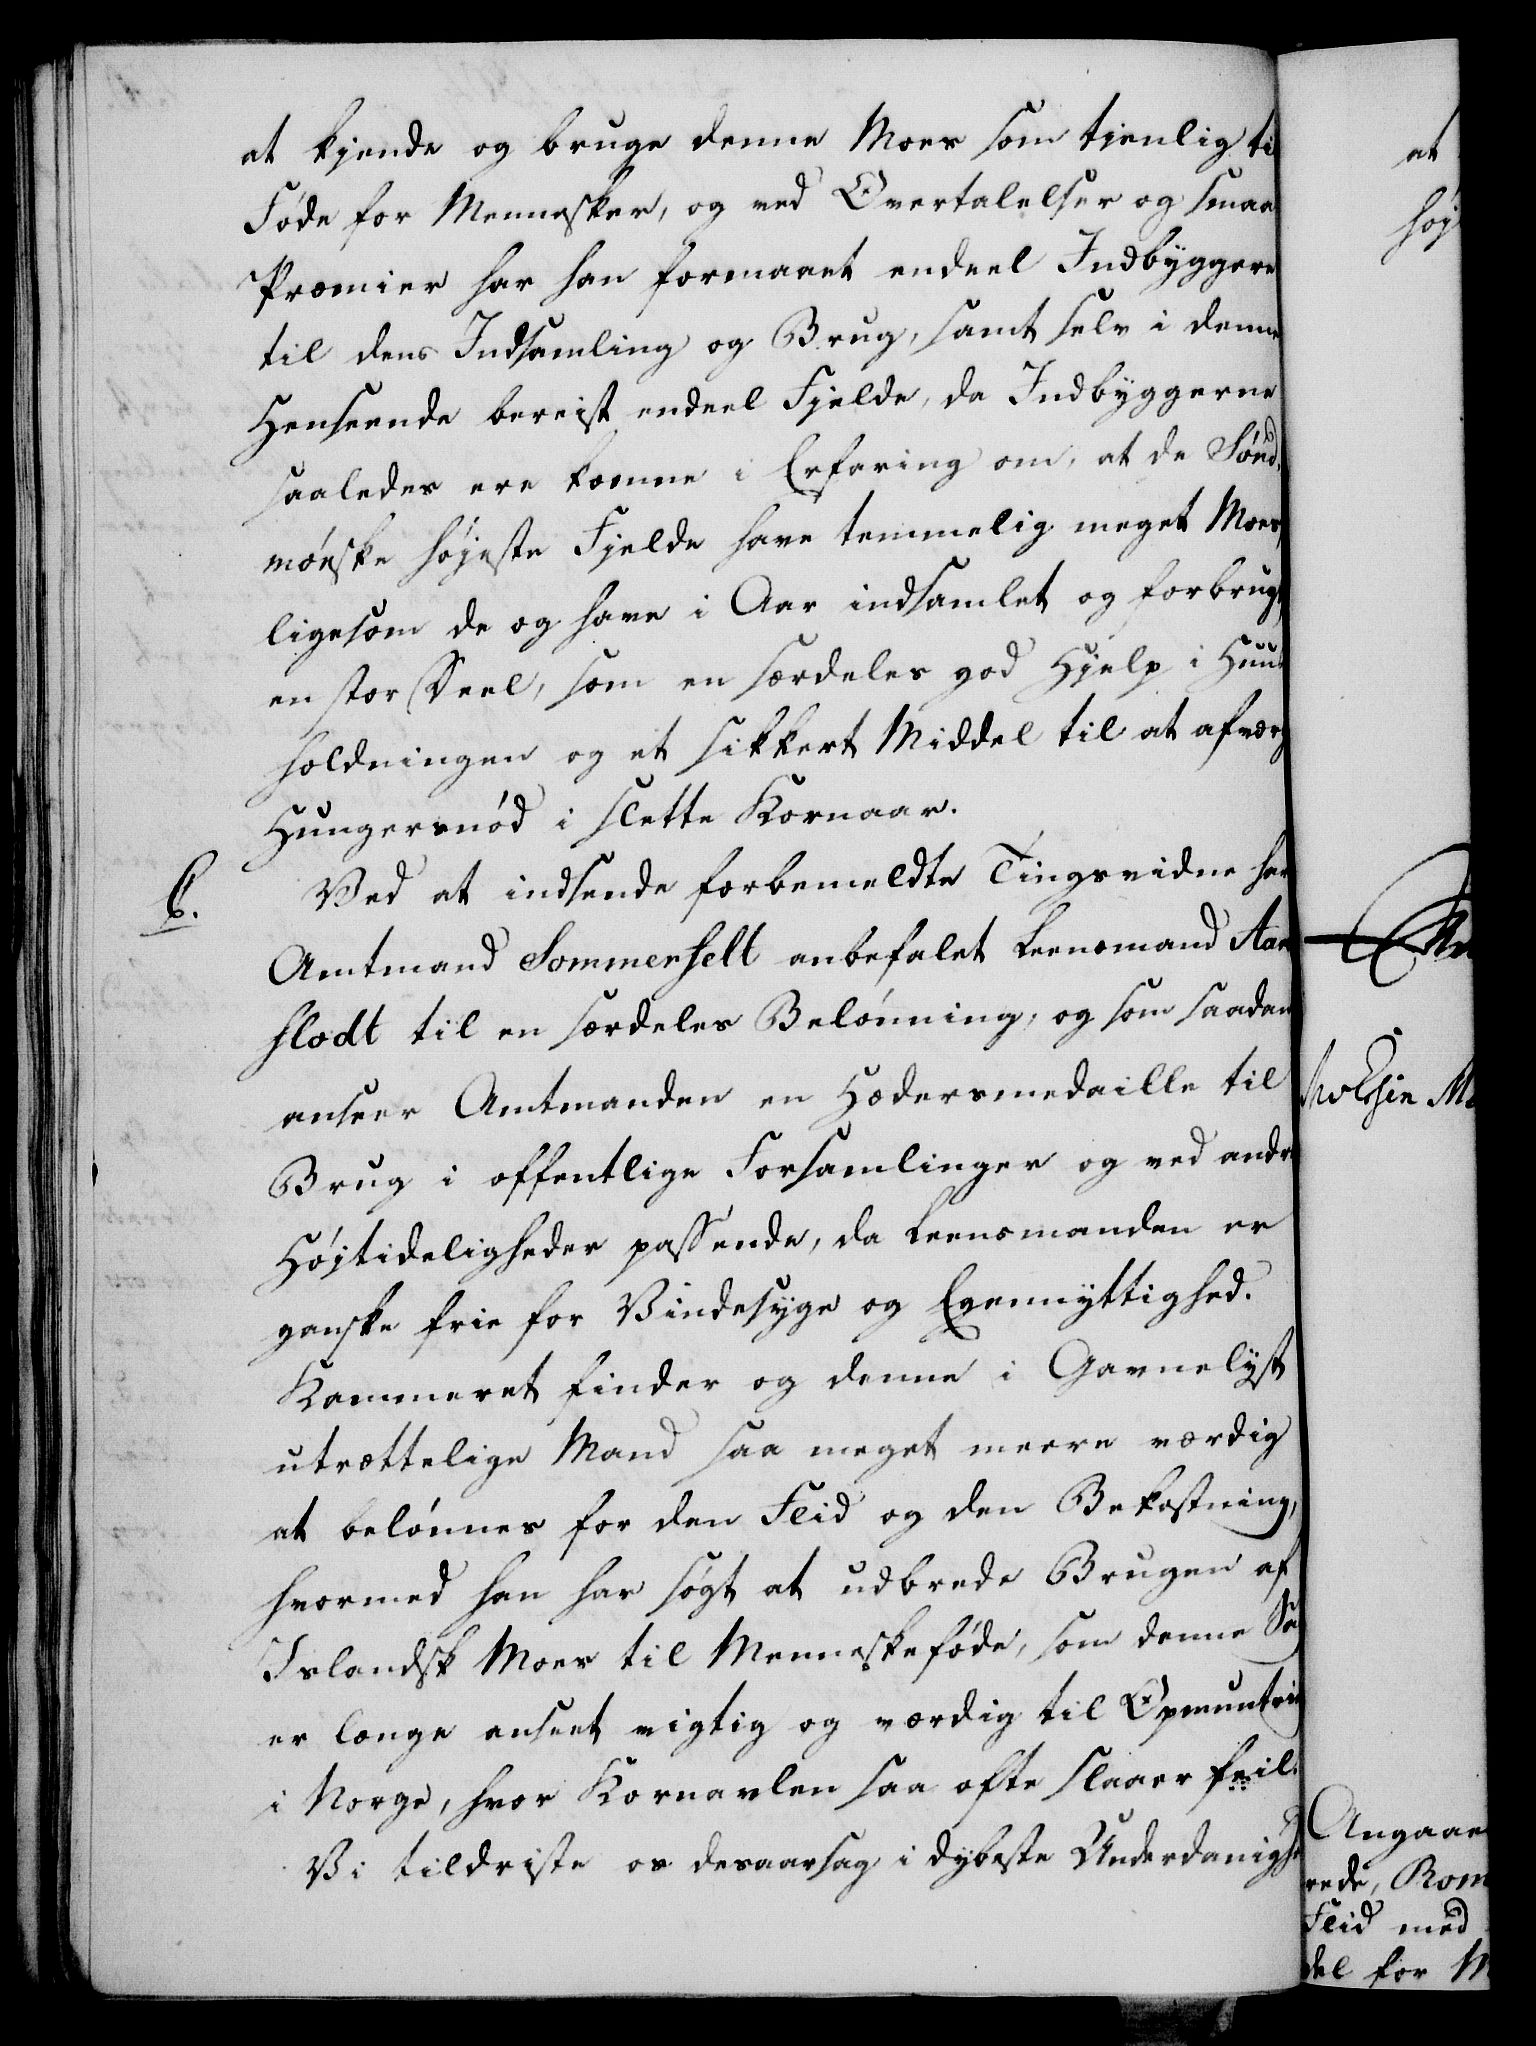 at kjende og bruge denne Moes som tienlig ti
Føde for Mennesker, og ved Overtalelser og smaa
Præmier har han formaaet endeel Indbyggere
til dens Indsamling og Brug, samt selv i denne
Henseende bereist endeel Fjelde, da Indbyggerne
saaledes ere komne i Erfaring om, at de Sønd-
møerske højeste Fjelde have temmelig meget Moes,
ligesom de og have i Aar indsamlet og forbrugt
en stor Deel, som en særdeles god Hjelp i Huus
holdningen og et sikkert Middel til at afværg
Hungersnød i slette Kornaar.
6.
Ved at indsende forbemeldte Tingsvidne har
Amtmand Sommerfelt anbefalet Leensmand Aar
flodt til en særdeles Belønning, og som saadan
anseer Amtmanden en Hædersmedaille til
Brug i offentlige Forsamlinger og ved andre
Højtideligheder passende, da Leensmanden er
ganske frie for Vindesyge og Egennyttighed.
Kammeret finder og denne i Gavnelyst
utrættelige Mand saa meget meere værdig
at belønnes for den Fliid og den Bekostning,
hvormed han har søgt at udbrede Brugen af
Islandsk Moes til Menneskeføde, som denne Sa
er længe anseet vigtig og værdig til Opmuntrin
i Norge, hvor Kornavlen saa ofte slaaer feil.
Vi tildriste os desaarsag i dybeste Underdanighe
at
høj
Angaae
rede, Rom
Flid med
del for M